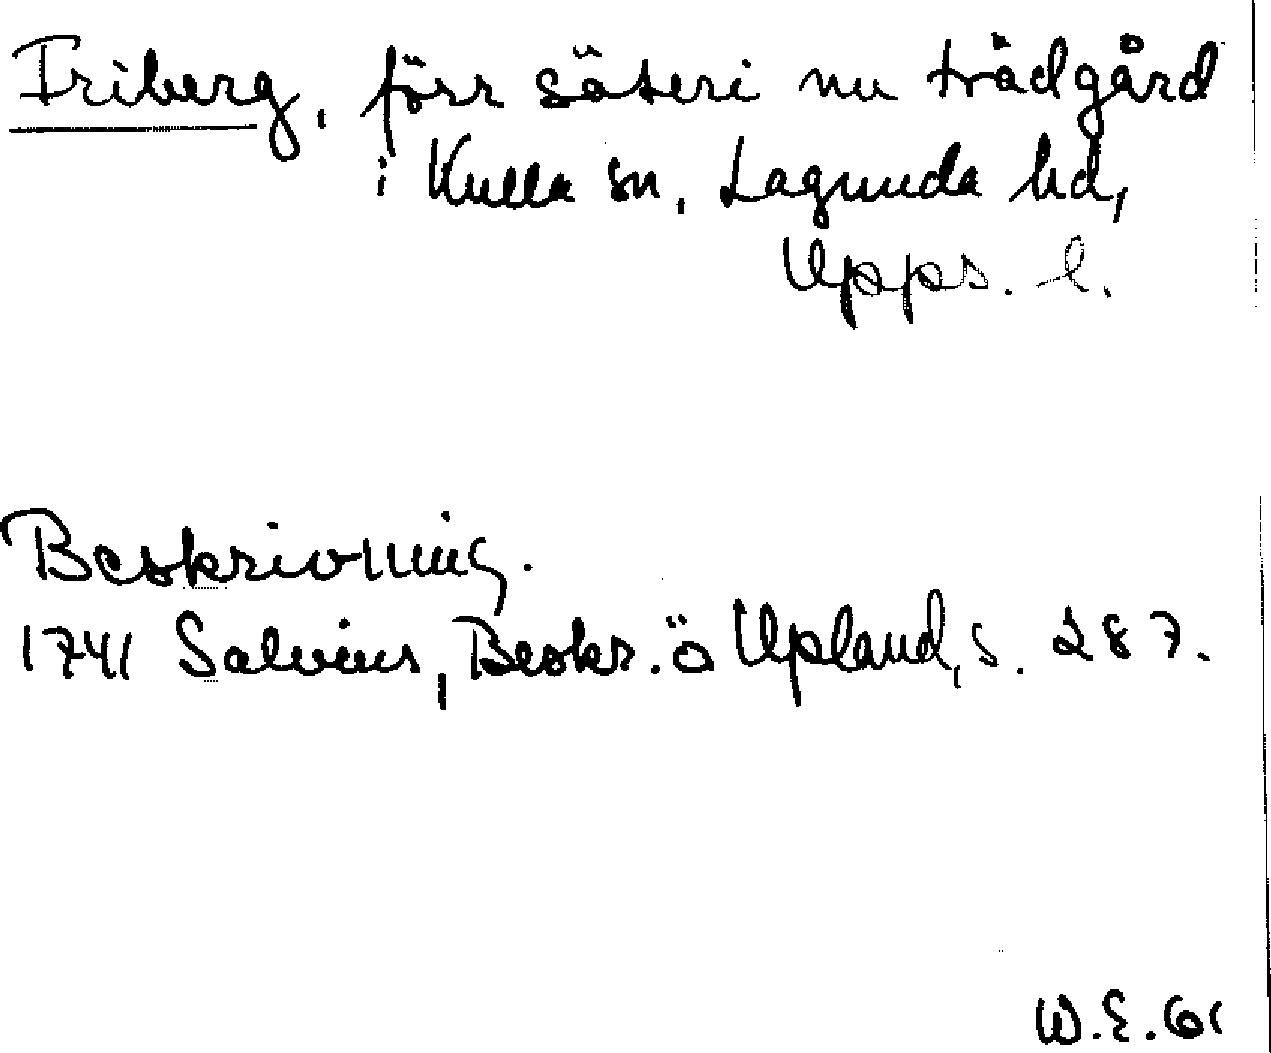 Friberg, förr säteri nu trädgård
i Kulla sn, Lagunda hd,
Upps. l.
Beskrivning.
1741 Salvius, Beskr. ö Upland, s. 287.
W.E. 61